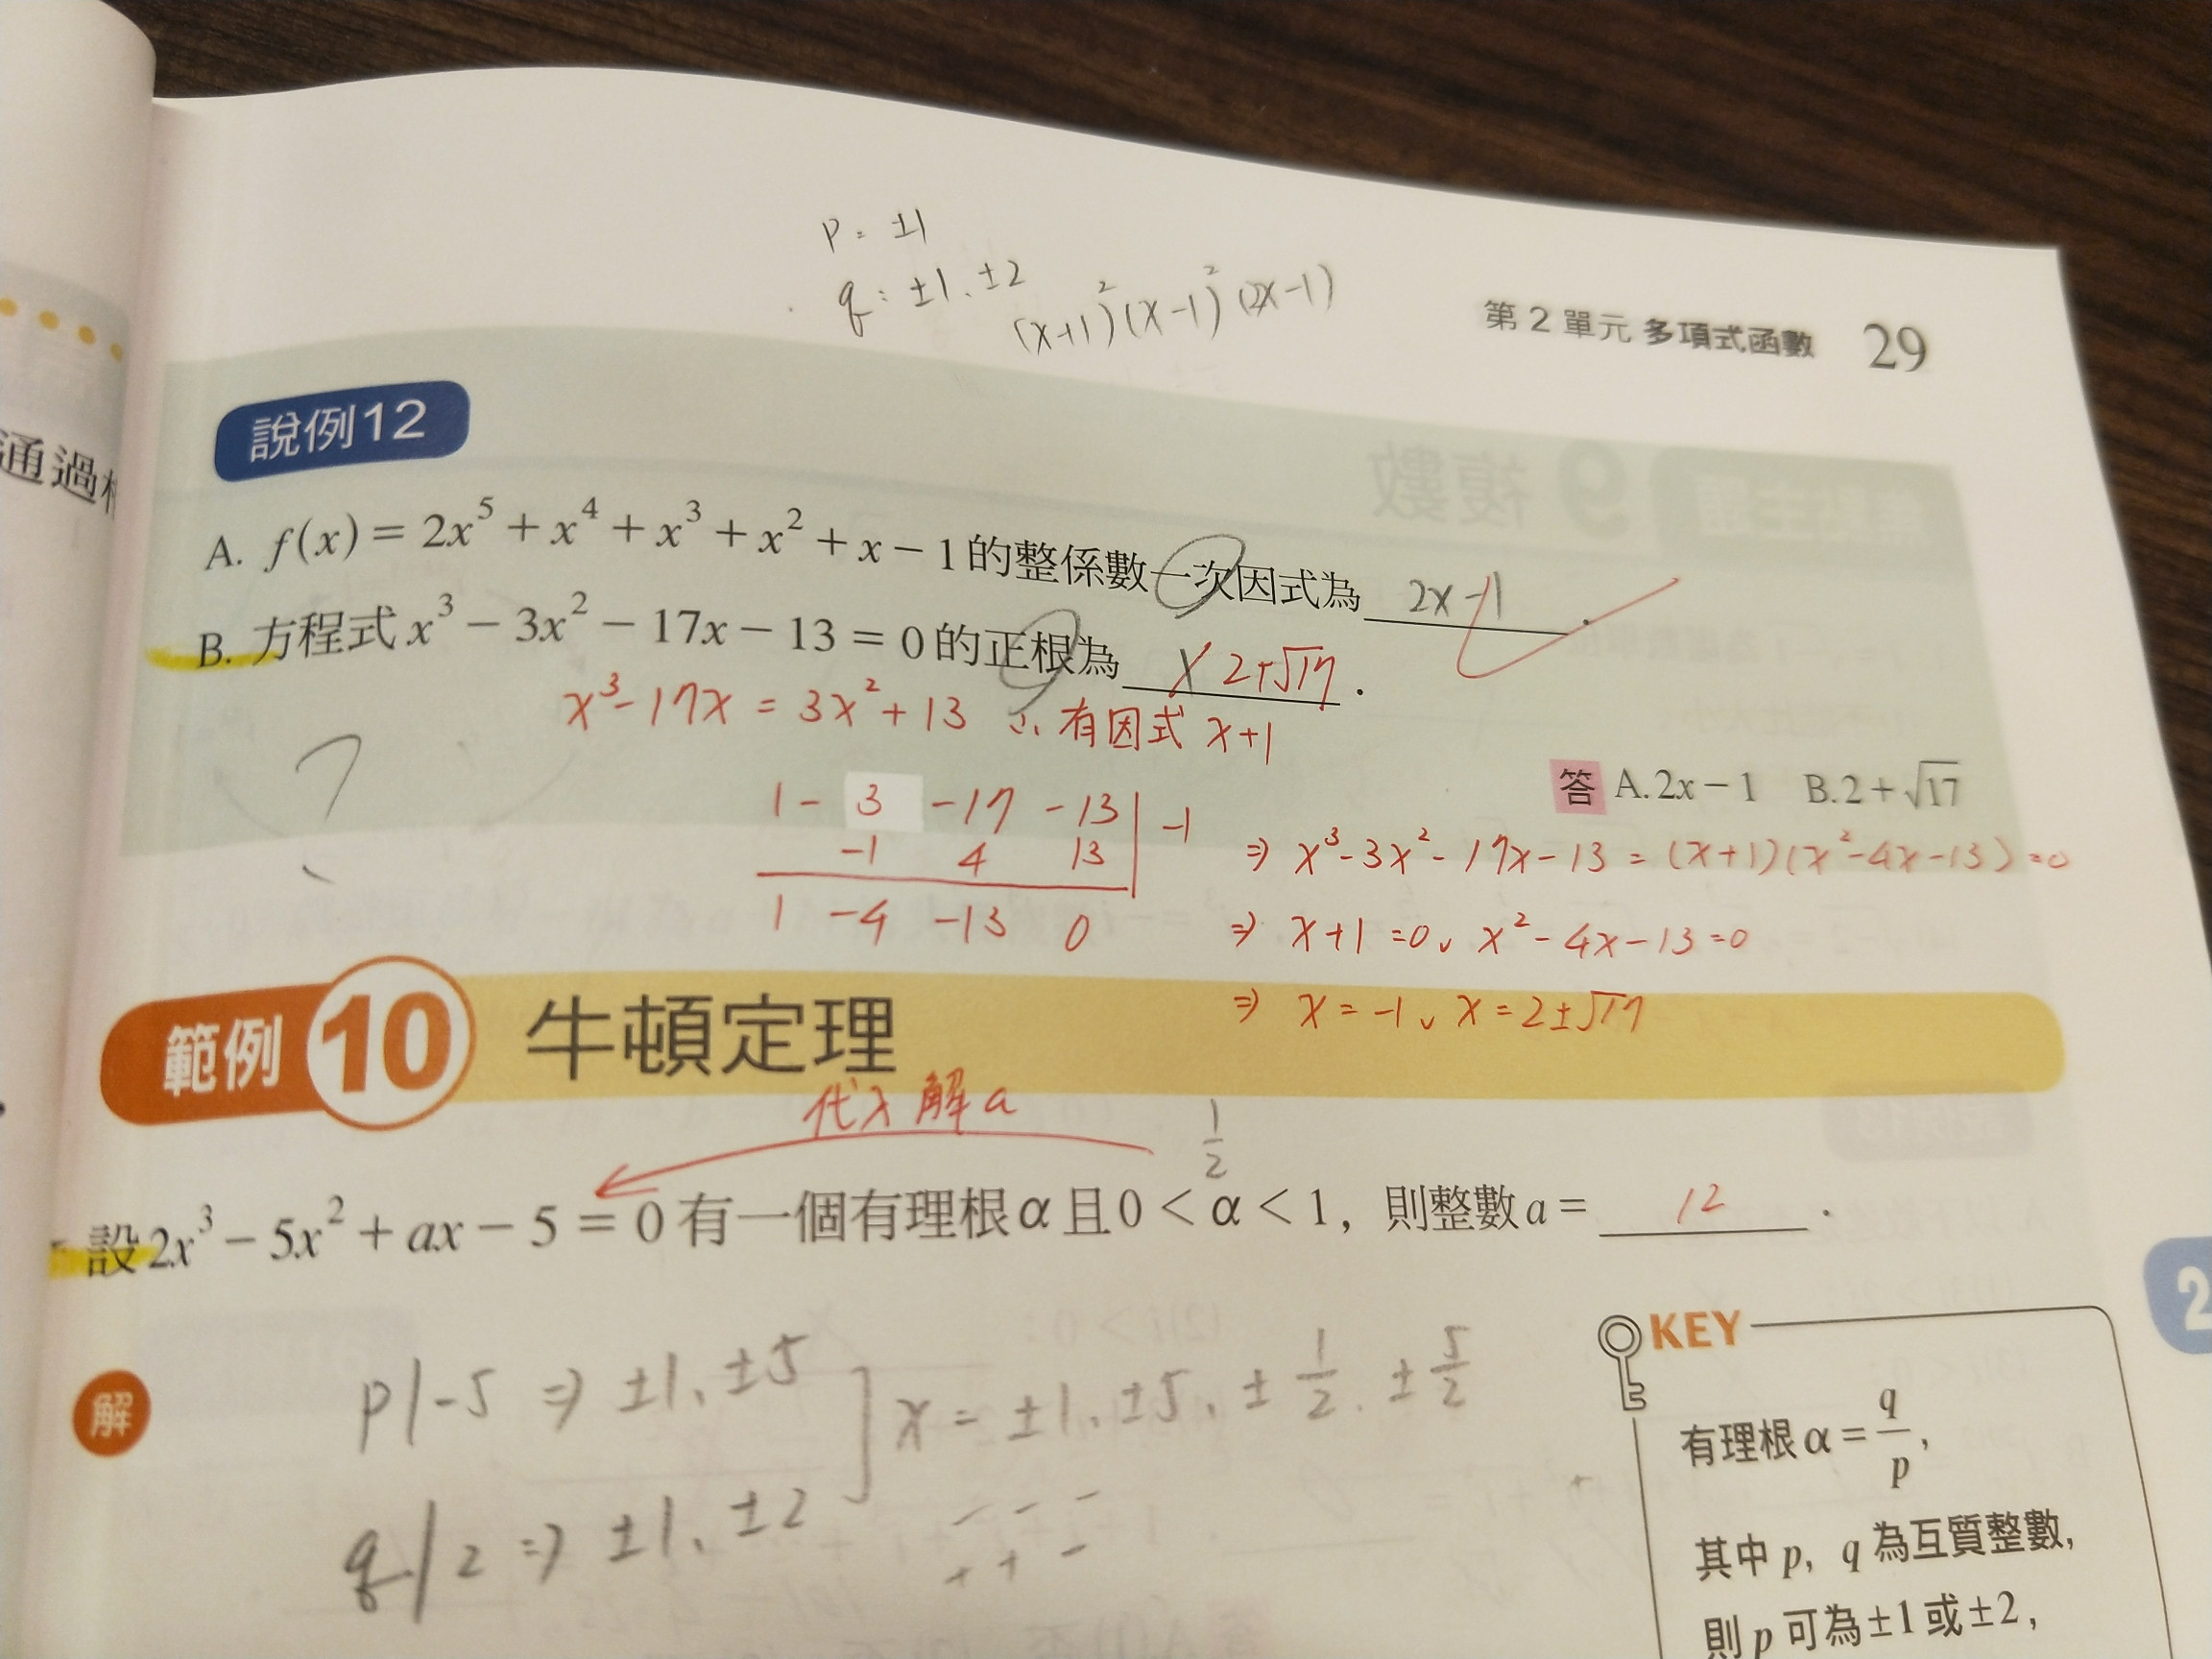 p = ±1
q = ±1、±2
(x+1)²(x-1)²(2x-1)
第 2 單元 多項式函數 29
通過
說例12
A. f(x) = 2x⁵ + x⁴ + x³ + x² + x − 1 的整係數一次因式為 2x-1 .
B. 方程式 x³ − 3x² − 17x − 13 = 0 的正根為 2+√17 .
x³-17x = 3x²+13 ∴ 有因式 x+1
?
答 A. 2x − 1 B. 2 + √17
1 - 3 -17 -13 | -1
-1 4 13
1 -4 -13 0
⇒ x³-3x²-17x-13 = (x+1)(x²-4x-13) =0
⇒ x+1 =0、x²-4x-13=0
⇒ x = -1、x = 2±√17
範例 10 牛頓定理
代入解a
1/2
設 2x³ − 5x² + ax − 5 = 0 有一個有理根 α 且 0 < α < 1，則整數 a = 12 .
解
p|-5 ⇒ ±1、±5
x = ±1、±5、± 1/2、± 5/2
q|2 ⇒ ±1、±2
− − −
+ + −
KEY
有理根 α = q/p，
其中 p，q 為互質整數，
則 p 可為 ±1 或 ±2，
2